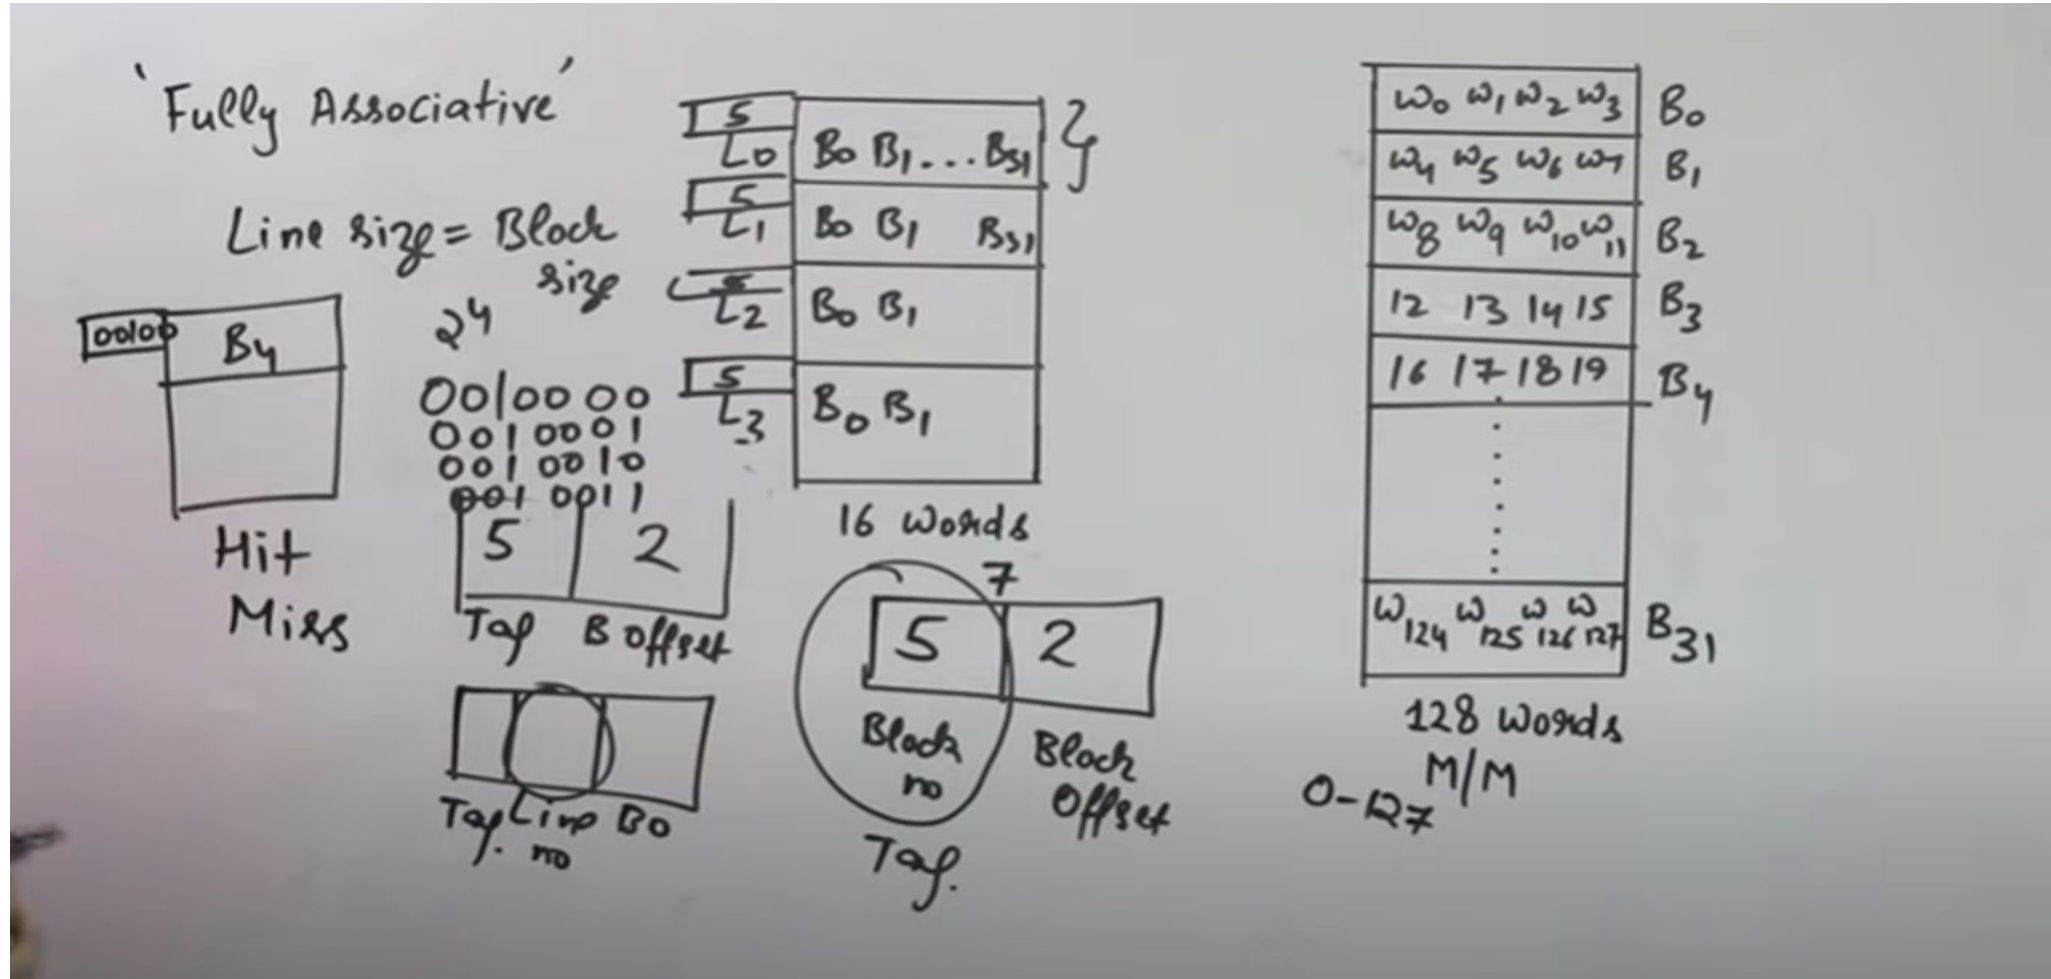 'Fully Associative'
Line size = Block
size
00100 B4
2^4
0010000
0010001
0010010
0010011
5 2
Tag B offset
Hit
Miss
Tag. Line BO
no
5
L0 B0 B1 . . . B31
5
L1 B0 B1 B31
5
L2 B0 B1
5
L3 B0 B1
16 words
7
5 2
Block Block
no Offset
Tag.
W0 W1 W2 W3 B0
W4 W5 W6 W7 B1
W8 W9 W10 W11 B2
12 13 14 15 B3
16 17 18 19 B4
W124 W125 W126 W127 B31
128 words
M/M
0-127